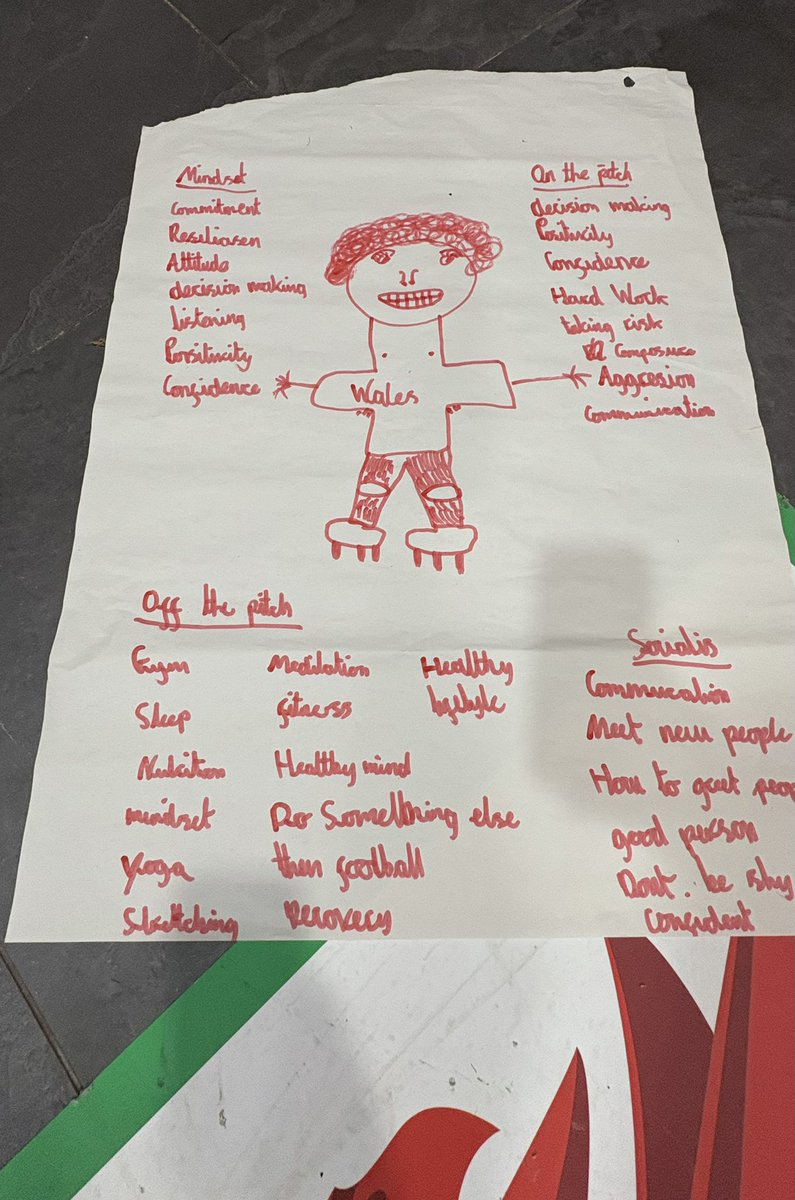 Mindset
Commitment
Resiliaren
Attitude
decision making
listening
Porsiticity
Confidence
On the pitch
decision making
Positivity
Confidence
Hard Work
taking risk
Composure
Aggresion
Communication
Wales
Off the pitch
Gym
Sleep
Nutrition
mindset
Yoga
Stretching
Meditation
fitness
Healthy mind
Do Something else
then football
recovery
Healthy
lifestyle
Socialis
Commucation
Meet new people
How to greet peop
good person
Dont. be shy
Confident